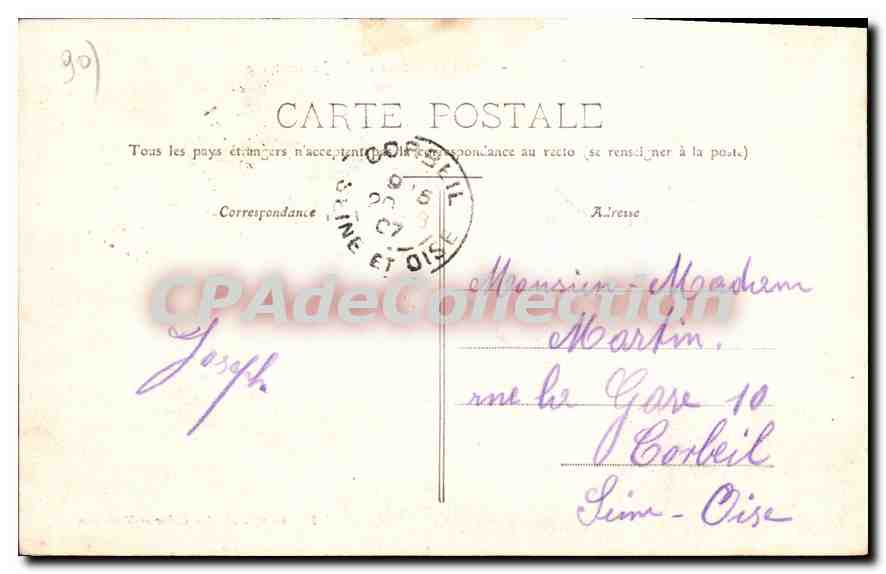 90)
CARTE POSTALE
Tous les pays étrangers n'acceptent pas la correspondance au recto (se renseigner à la poste)
CORBEIL
07
SEINE ET OISE
Correspondance
Adresse
CPAdeCollection
Monsieur-Madam
Martin.
rue la Gare 10
Corbeil
Seine-Oise
Joseph